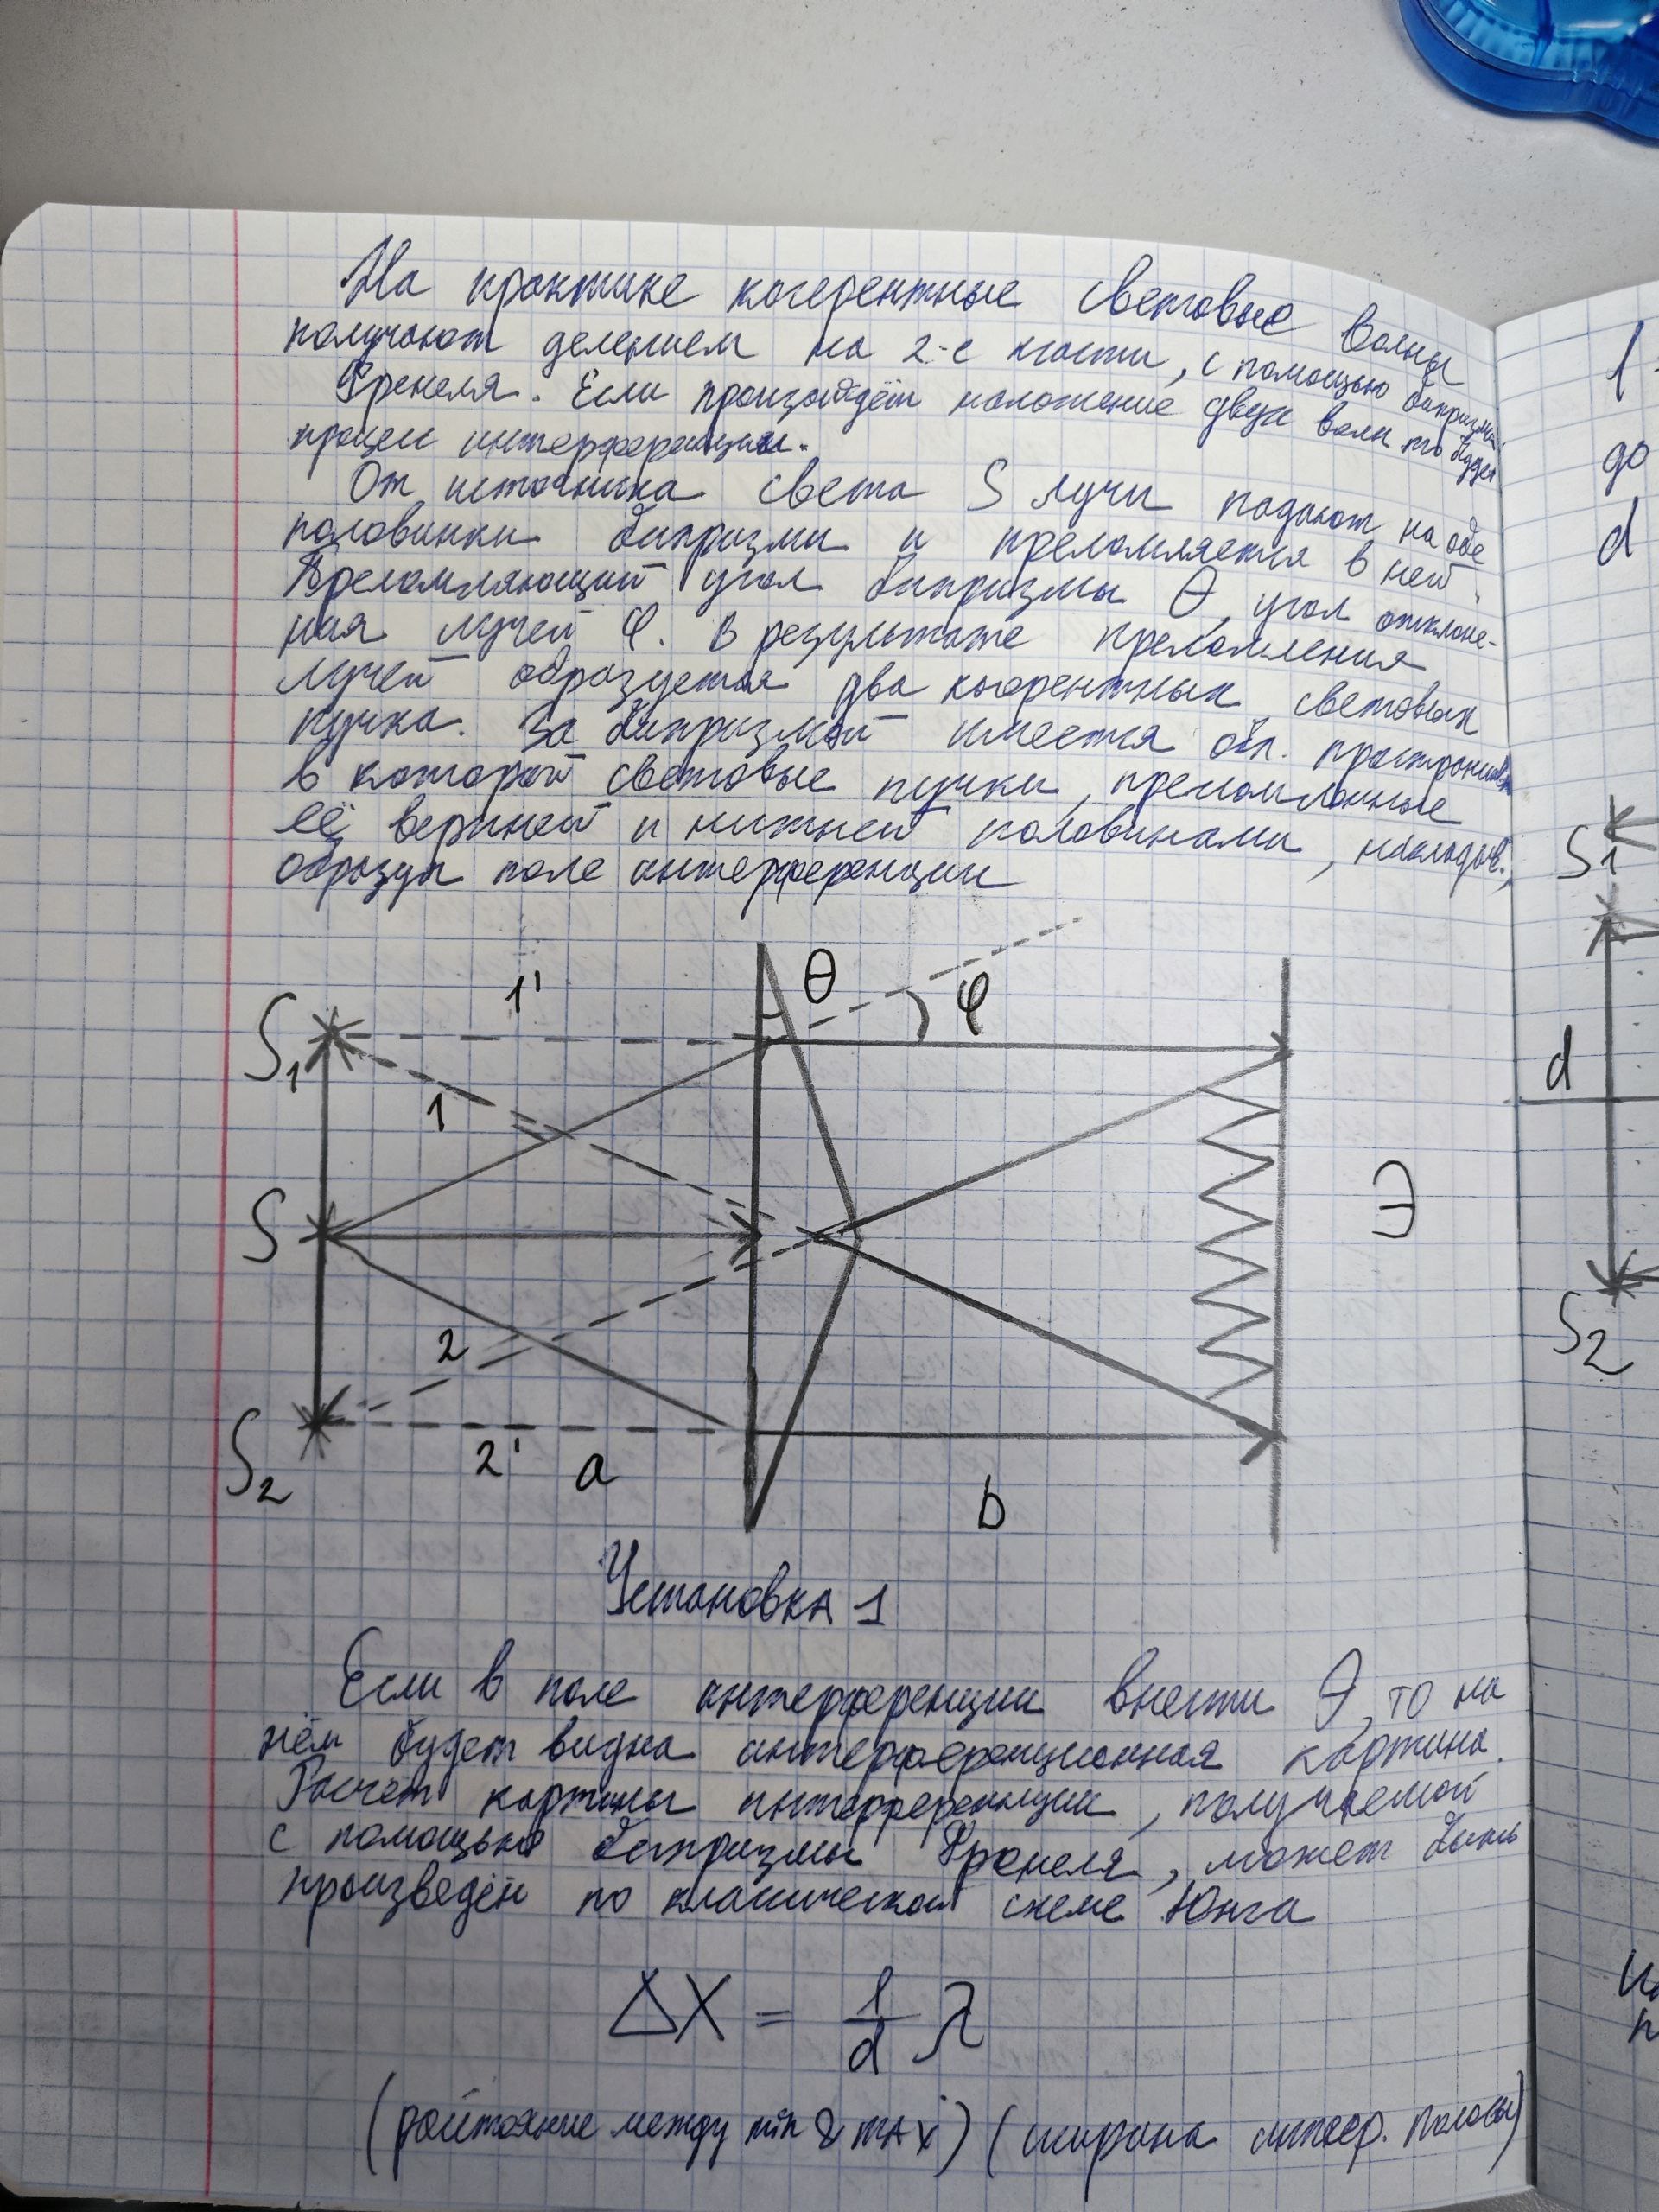 На практике когерентные световые волны
получают делением на 2-е части, с помощью бипризмы
Френеля. Если произойдёт наложение двух волн то будет
процес интерференции.
От источника света S лучи падают на обе
половинки бипризмы и преломляется в ней.
Преломляющий угол бипризмы θ, угол отклоне-
ния лучей φ. В результате преломления
лучей образуется два когерентных световых
пучка. За бипризмой имеется обл. пространства
в которой световые пучки, преломлённые
её верхней и нижней половинами, накладыв.,
образуя поле интерференции
1'
θ
φ
S1
1
S
Э
2
S2
2'
a
b
Установка 1
Если в поле интерференции внести Э, то на
нём будет видна интерференционная картина.
Расчёт картины интерференции, получаемой
с помощью бипризмы Френеля, может быть
произведён по класической схеме Юнга
ΔX = l/d λ
(растояние между min & max) (ширина интер. полосы)
l
до
d
S1
d
S2